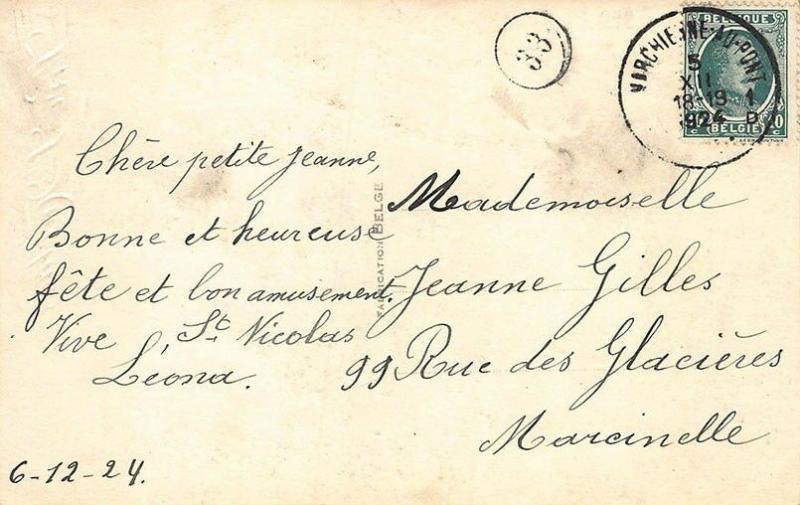 33
MARCHIENNE-AU-PONT
5
XII
18-19
1924
1
D
BELGIQUE
BELGIË
Chère petite Jeanne,
Bonne et heureuse
fête et bon amusement.
Vive St. Nicolas
Léona.
6-12-24.
FABRICATION BELGE
Mademoiselle
Jeanne Gilles
99 Rue des Glacières
Marcinelle